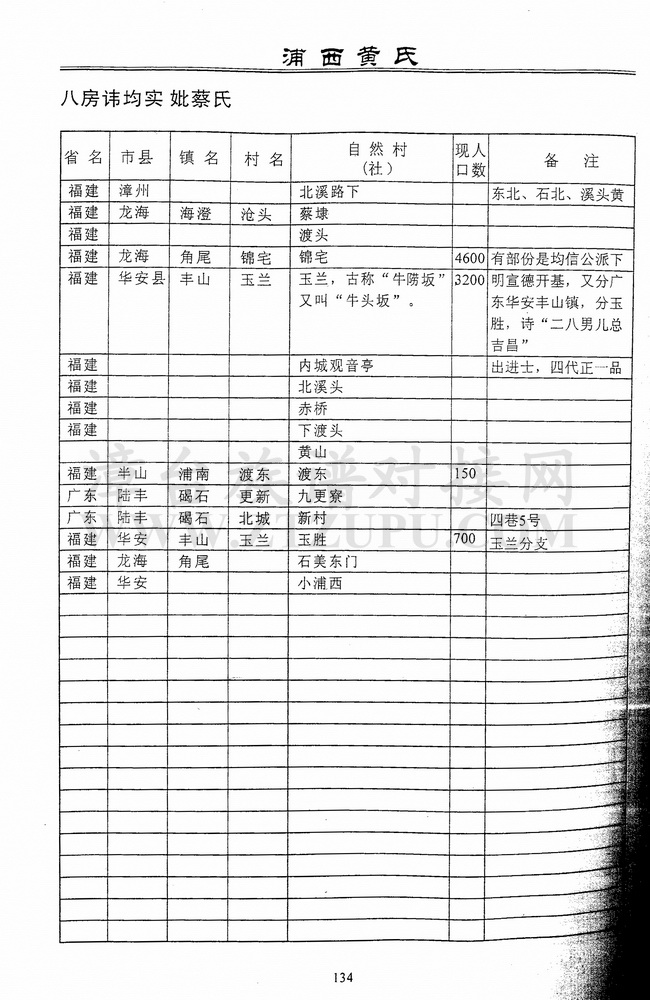 浦西黄氏
八房讳均实 妣蔡氏
省 名 市县 镇 名 村 名 自 然 村 (社) 现人口数 备 注
福建 漳州 北溪路下 东北、石北、溪头黄
福建 龙海 海澄 沧头 蔡埭
福建 渡头
福建 龙海 角尾 锦宅 锦宅 4600 有部份是均信公派下
福建 华安县 丰山 玉兰 玉兰，古称“牛涝坂” 3200 明宣德开基，又分广
又叫“牛头坂”。 东华安丰山镇，分玉
胜，诗“二八男儿总
吉昌”
福建 内城观音亭 出进士，四代正一品
福建 北溪头
福建 赤桥
福建 下渡头
黄山
福建 半山 浦南 渡东 渡东 150
广东 陆丰 碣石 更新 九更寮
广东 陆丰 碣石 北城 新村 四巷5号
福建 华安 丰山 玉兰 玉胜 700 玉兰分支
福建 龙海 角尾 石美东门
福建 华安 小浦西
漳台族谱对接网
WWW.ZTZUPU.COM
134